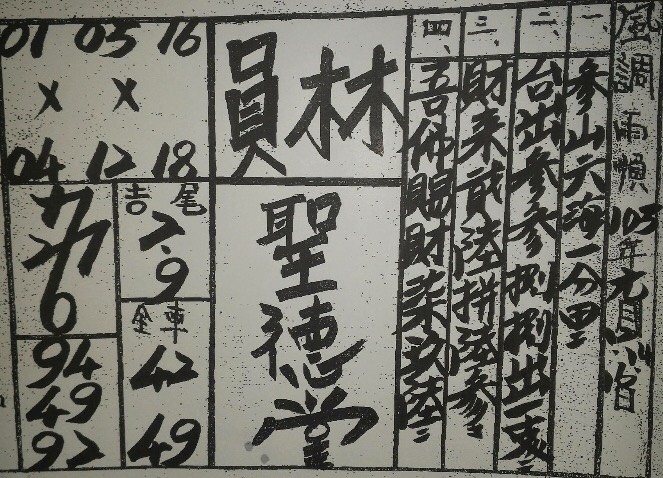 風調雨順 105年元月14日
一、參山六海一分田
二、台出參參捌捌出一支
三、財來貳陸拼溢參
四、吾佛賜財柒玖陸
員林
聖德堂
01 05 16
x x
04 12 18
吉尾
2.9
全車
42
49
6
94
49
92